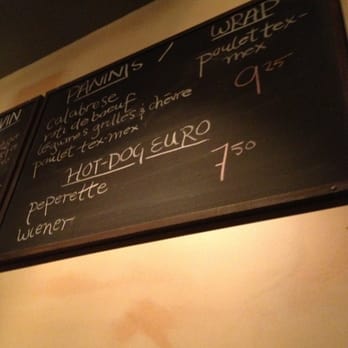 VIN
PANINIS / WRAP
calabrese
roti de boeuf
légumes grillés & chèvre
poulet tex-mex
poulet tex-
mex
9 25
HOT-DOG EURO
peperette
wiener
7 50